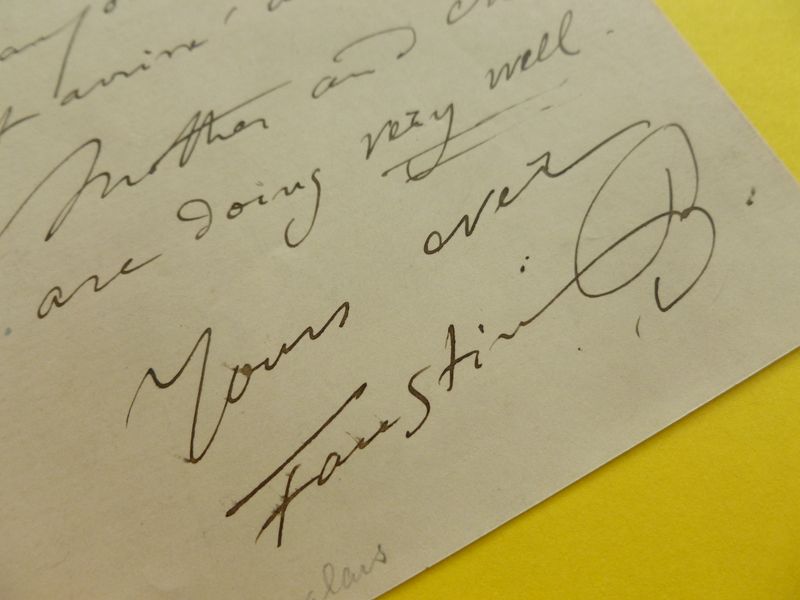 arrive,
Mother and
are doing very well.
Yours ever
Faustin B.